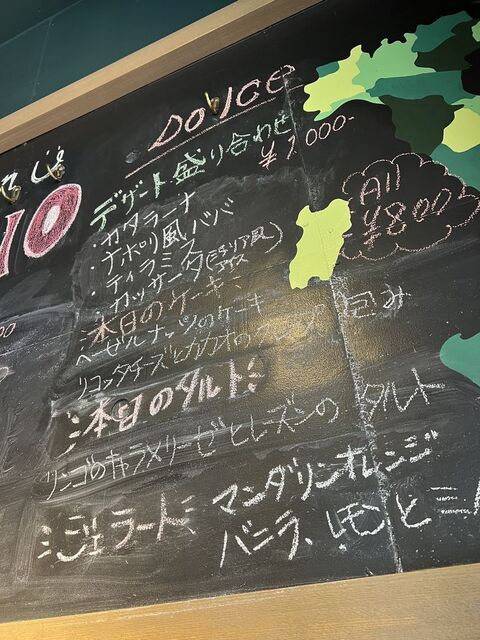 DOLCE
デザート盛り合わせ
¥2,000-
・カタラーナ
・ナポリ風ババ
・ティラミス
・カッサータ(シチリア風アイス)
All ¥800-
本日のケーキ
ヘーゼルナッツのケーキ
リコッタチーズとカカオの 包み
本日のタルト
リンゴのキャラメリーゼとレーズンの タルト
ジェラート
マンダリンオレンジ
バニラ、
10